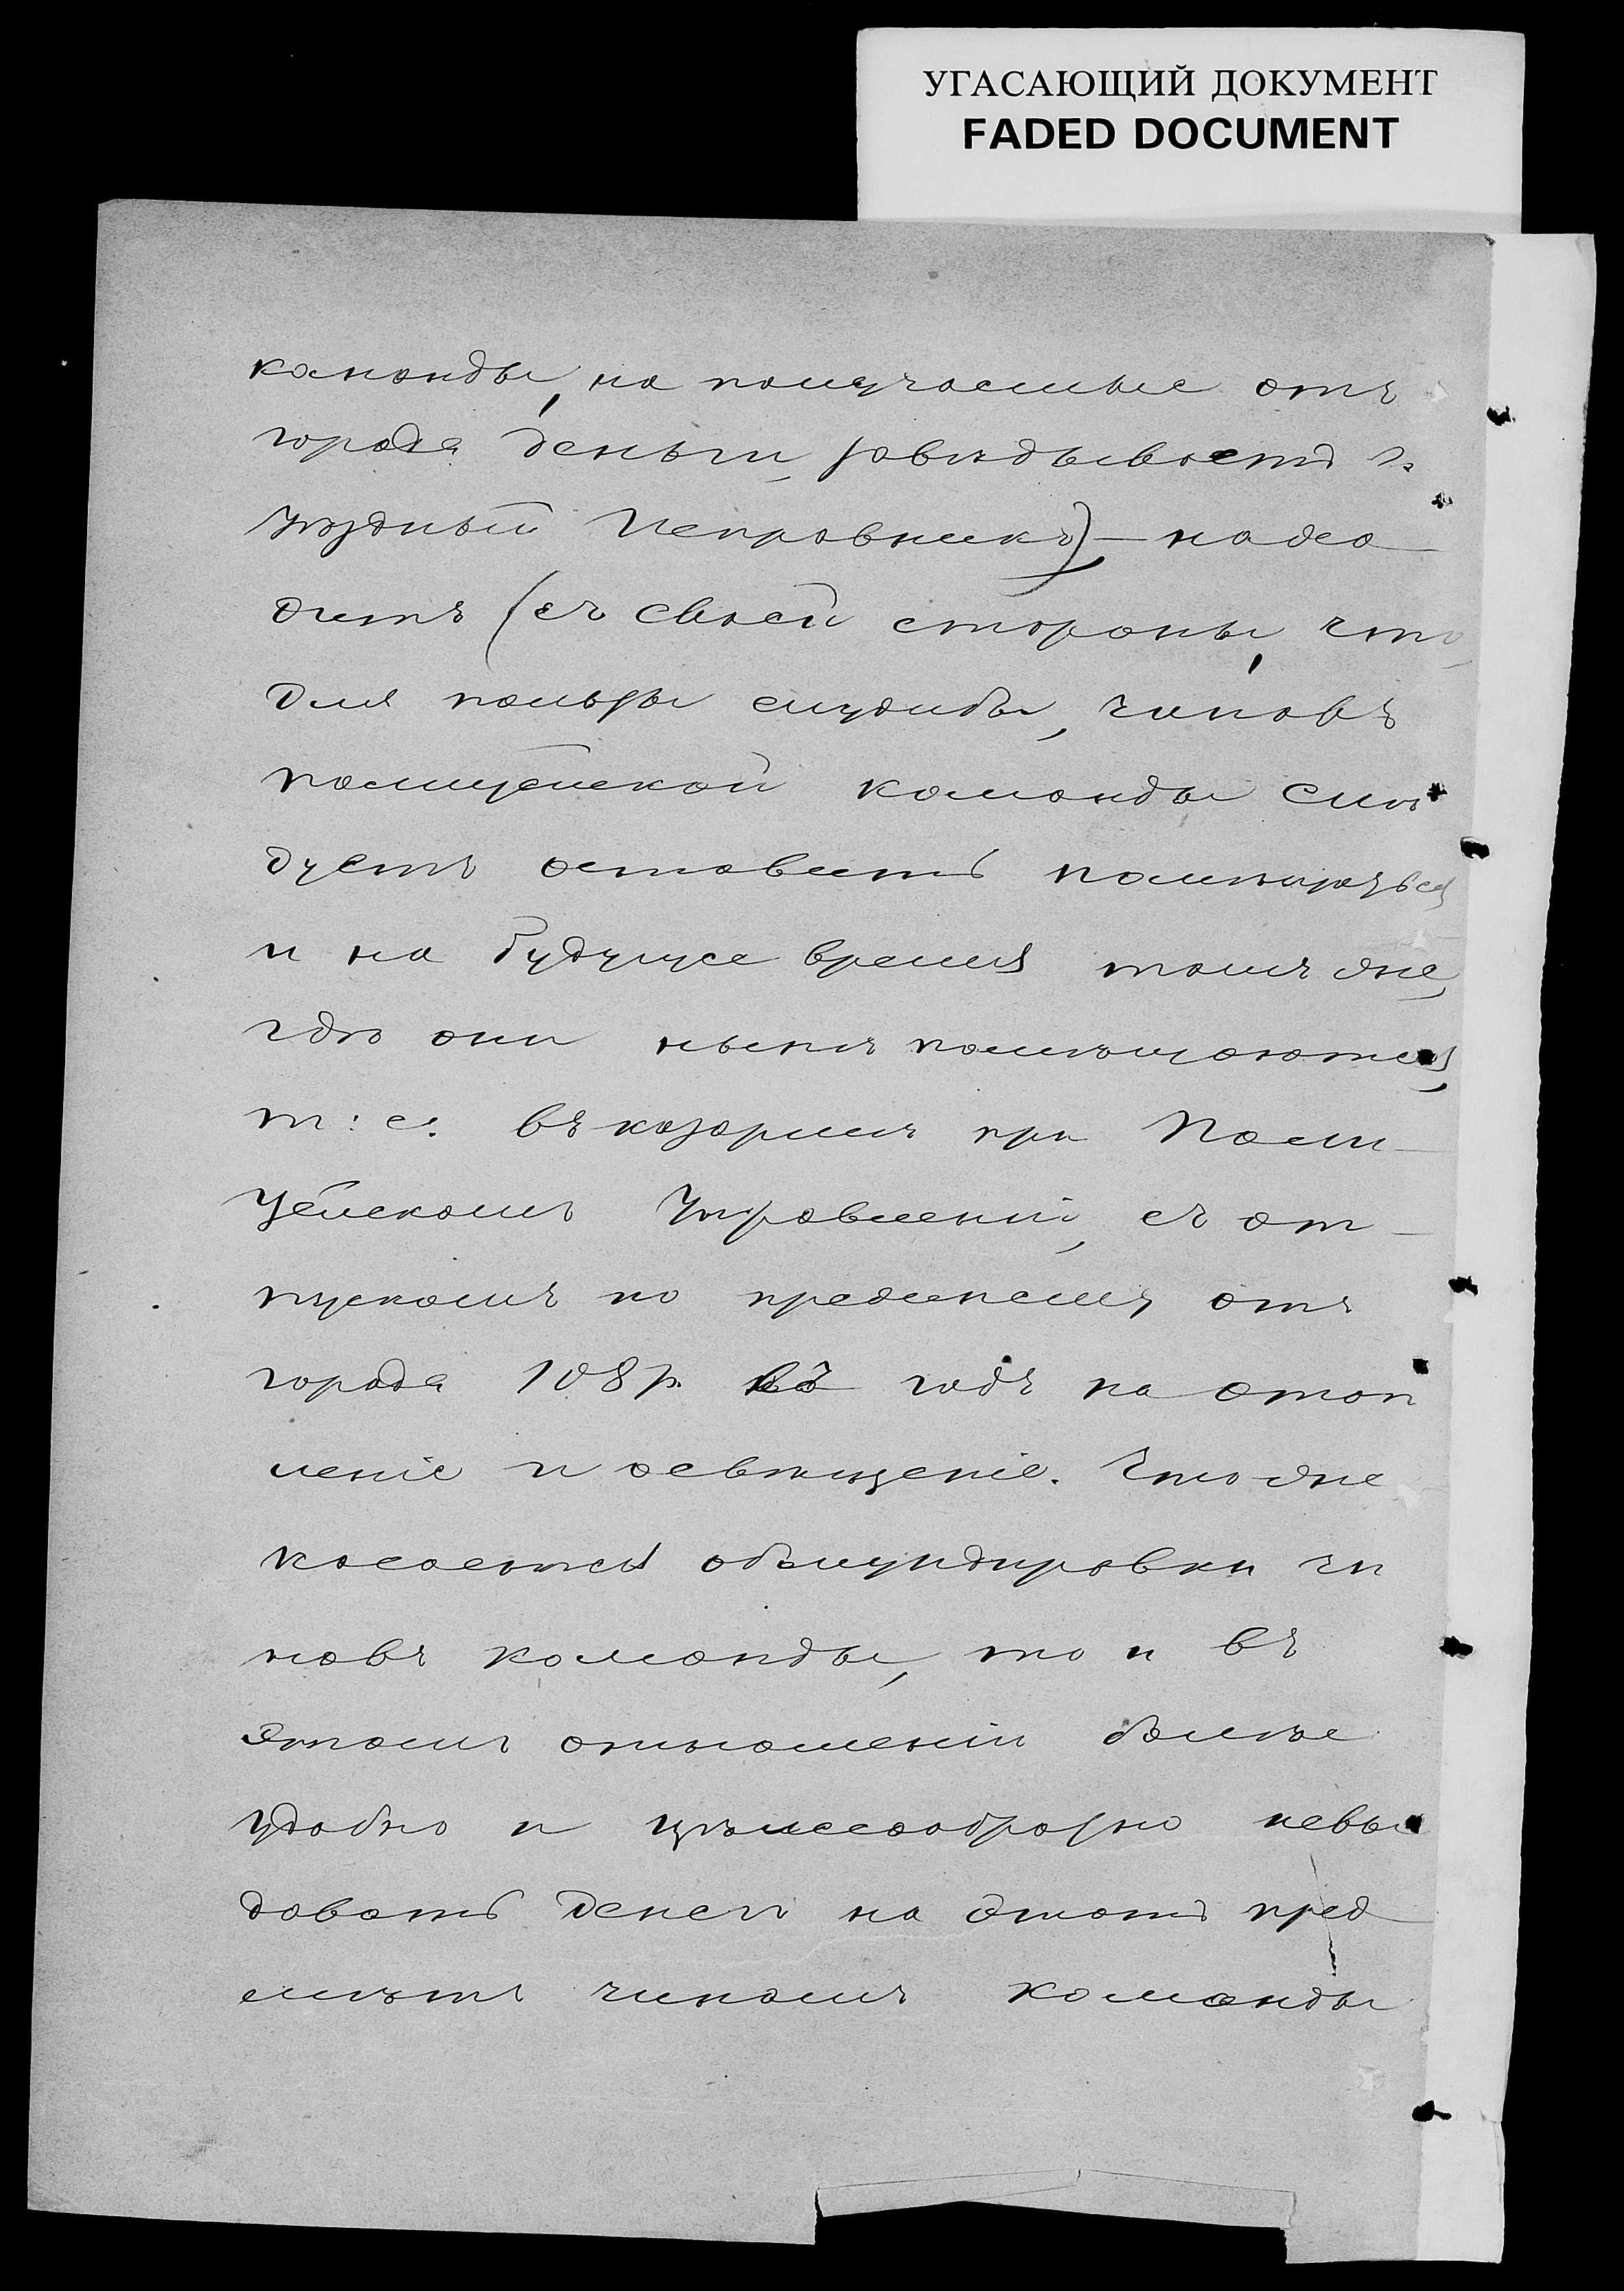 УГАСАЮЩИЙ ДОКУМЕНТ
FADED DOCUMENT
команды, на получаемые отъ
города деньги, завѣдываетъ г.
Уѣздный Исправникъ) — нахо-
дитъ (съ своей стороны, что,
для пользы службы, чиновъ
полицейской команды слѣ
дуетъ оставить помѣщаться
и на будущее время тамъ же,
гдѣ они нынѣ помѣщаются,
т: е. въ казармѣ при Поли-
цейскомъ Управленіи, съ от-
пускомъ по прежнему отъ
города 108 р. въ годъ на отоп
леніе и освѣщеніе. Что же
касается обмундировки чи
новъ команды, то и въ
этомъ отношеніи болѣе
удобно и цѣлесообразно невы
давать денегъ на этотъ пред
мѣтъ чинамъ команды